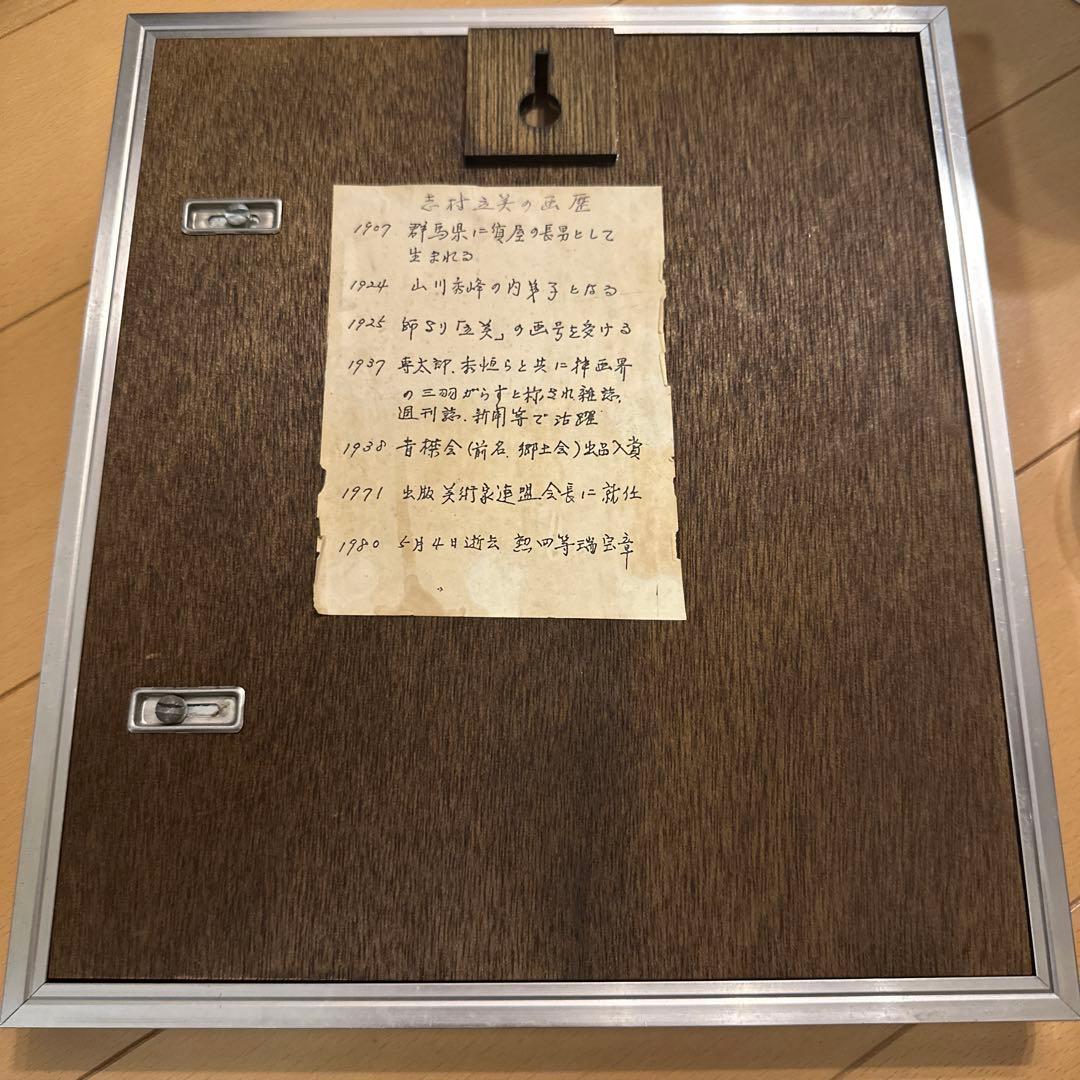 志村立美の画歴
1907 群馬県に質屋の長男として
生まれる
1924 山川秀峰の内弟子となる
1925 師より「立美」の画号を受ける
1937 専太郎、未恒らと共に挿画界
の三羽がらすと称され雑誌、
週刊誌、新聞等で活躍
1938 青襟会(前名、郷土会)出品入賞
1971 出版美術家連盟会長に就任
1980 5月4日逝去 勲四等瑞宝章